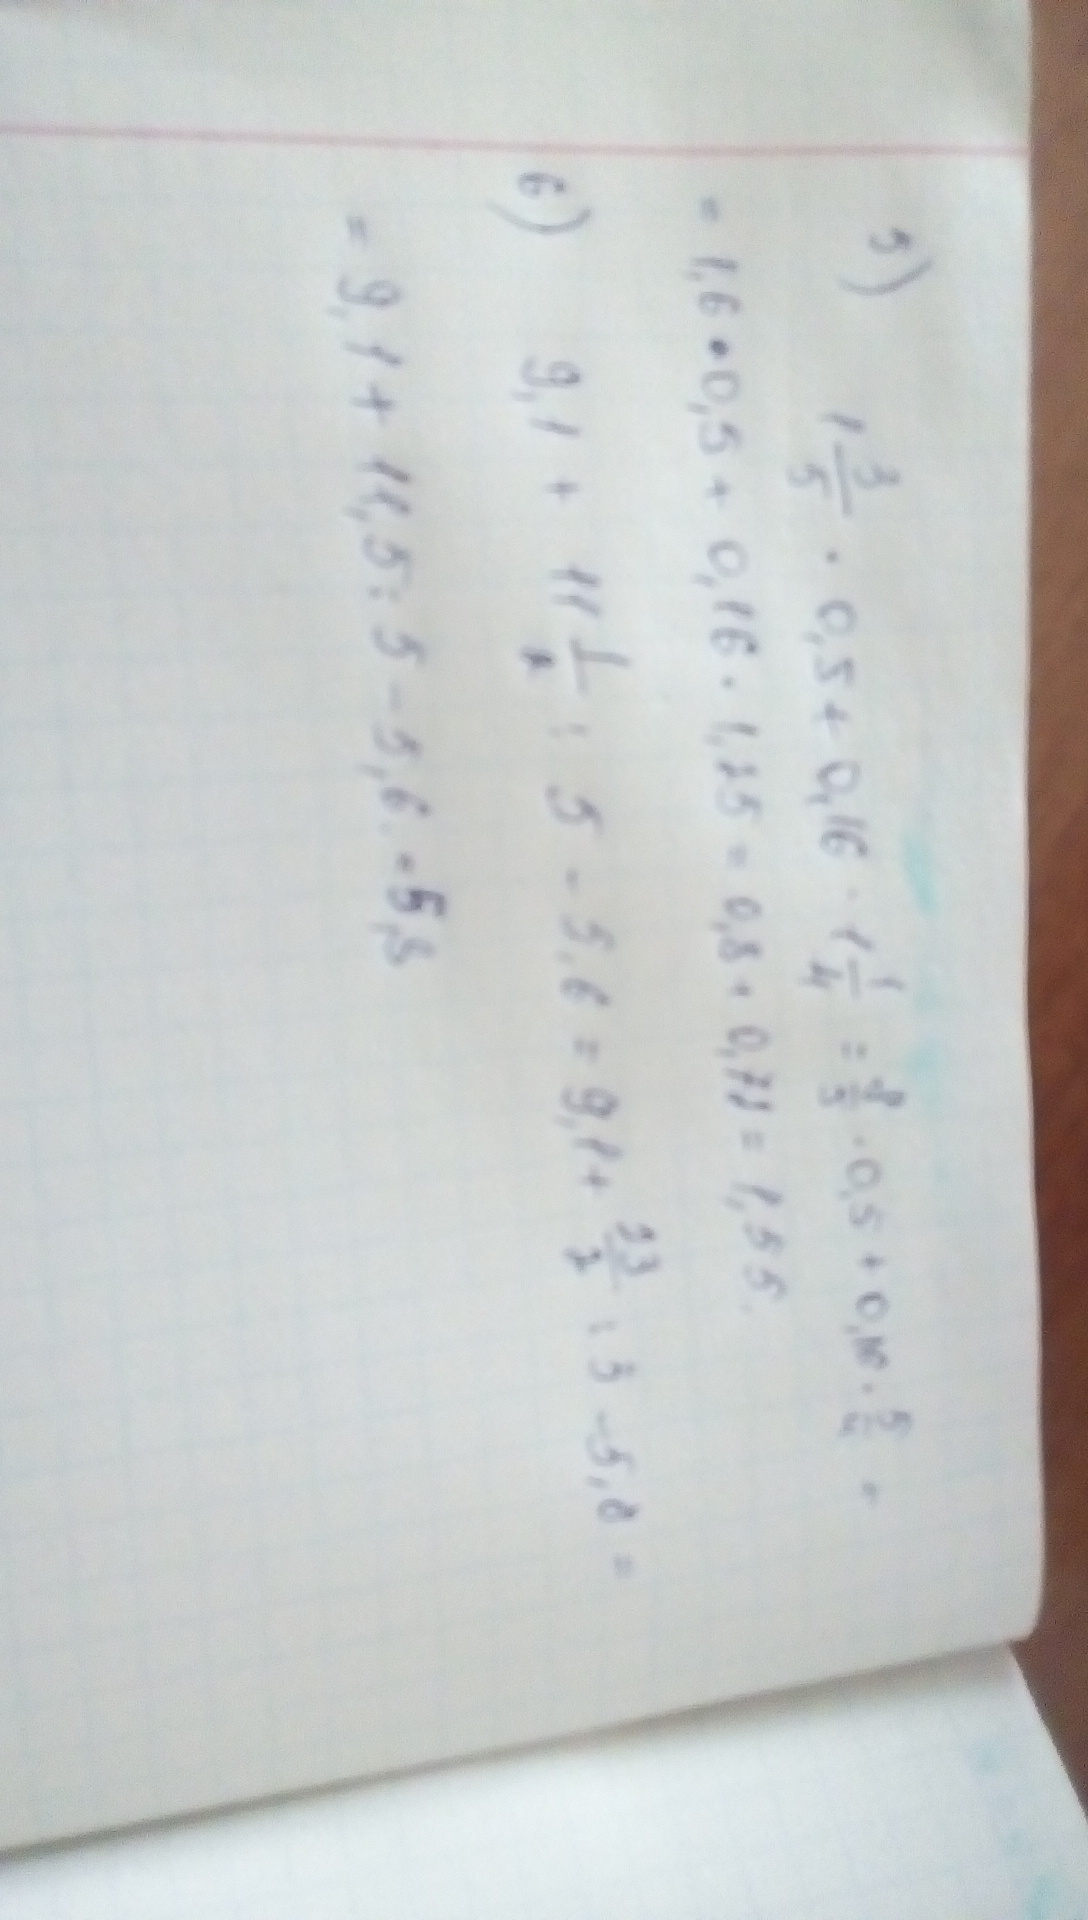 5) 1 3/5 · 0,5 + 0,16 · 1 1/4 = 8/5 · 0,5 + 0,16 · 5/4 =
= 1,6 · 0,5 + 0,16 · 1,25 = 0,8 + 0,71 = 1,55.
6) 9,1 + 11 1/2 : 5 - 5,6 = 9,1 + 23/2 : 5 - 5,6 =
= 9,1 + 11,5 : 5 - 5,6 = 5,8